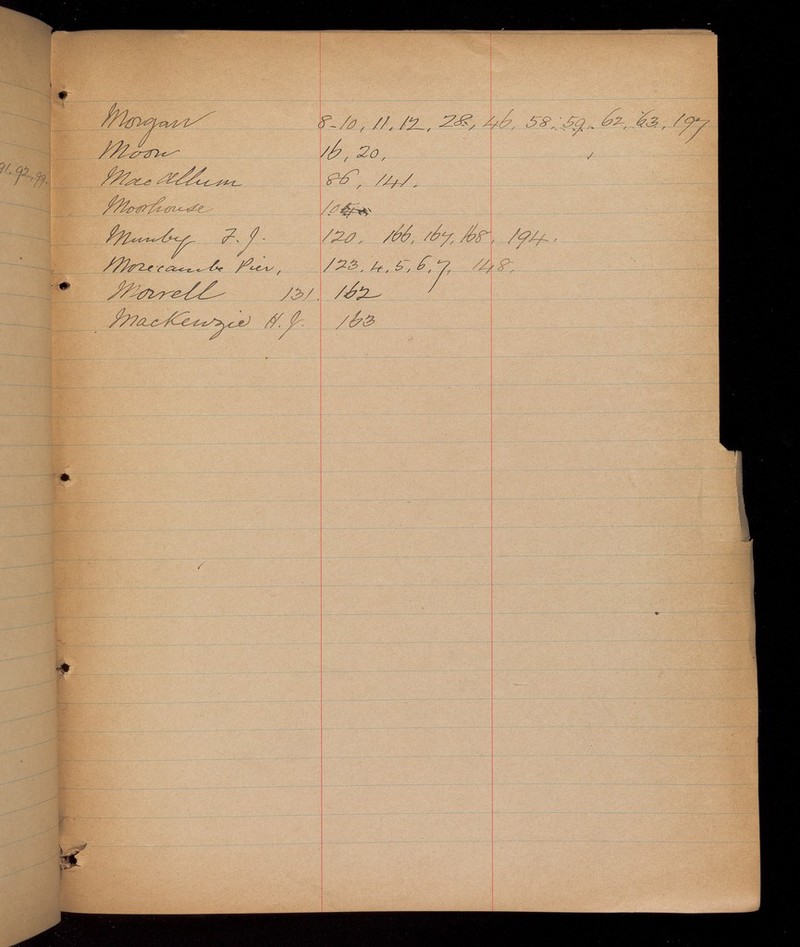 Morgan 8-10, 11, 12, 28, 46, 58, 59, 62, 63, 197
Moon 16, 20,
91, 92, 99.
MacAllum 86, 141.
Moorhouse
Munby F. J. 120, 166, 167, 168, 194.
Morecambe Pier, 123. 4. 5. 6. 7, 148.
Worrell 131. 162
MacKenzie H. J. 163